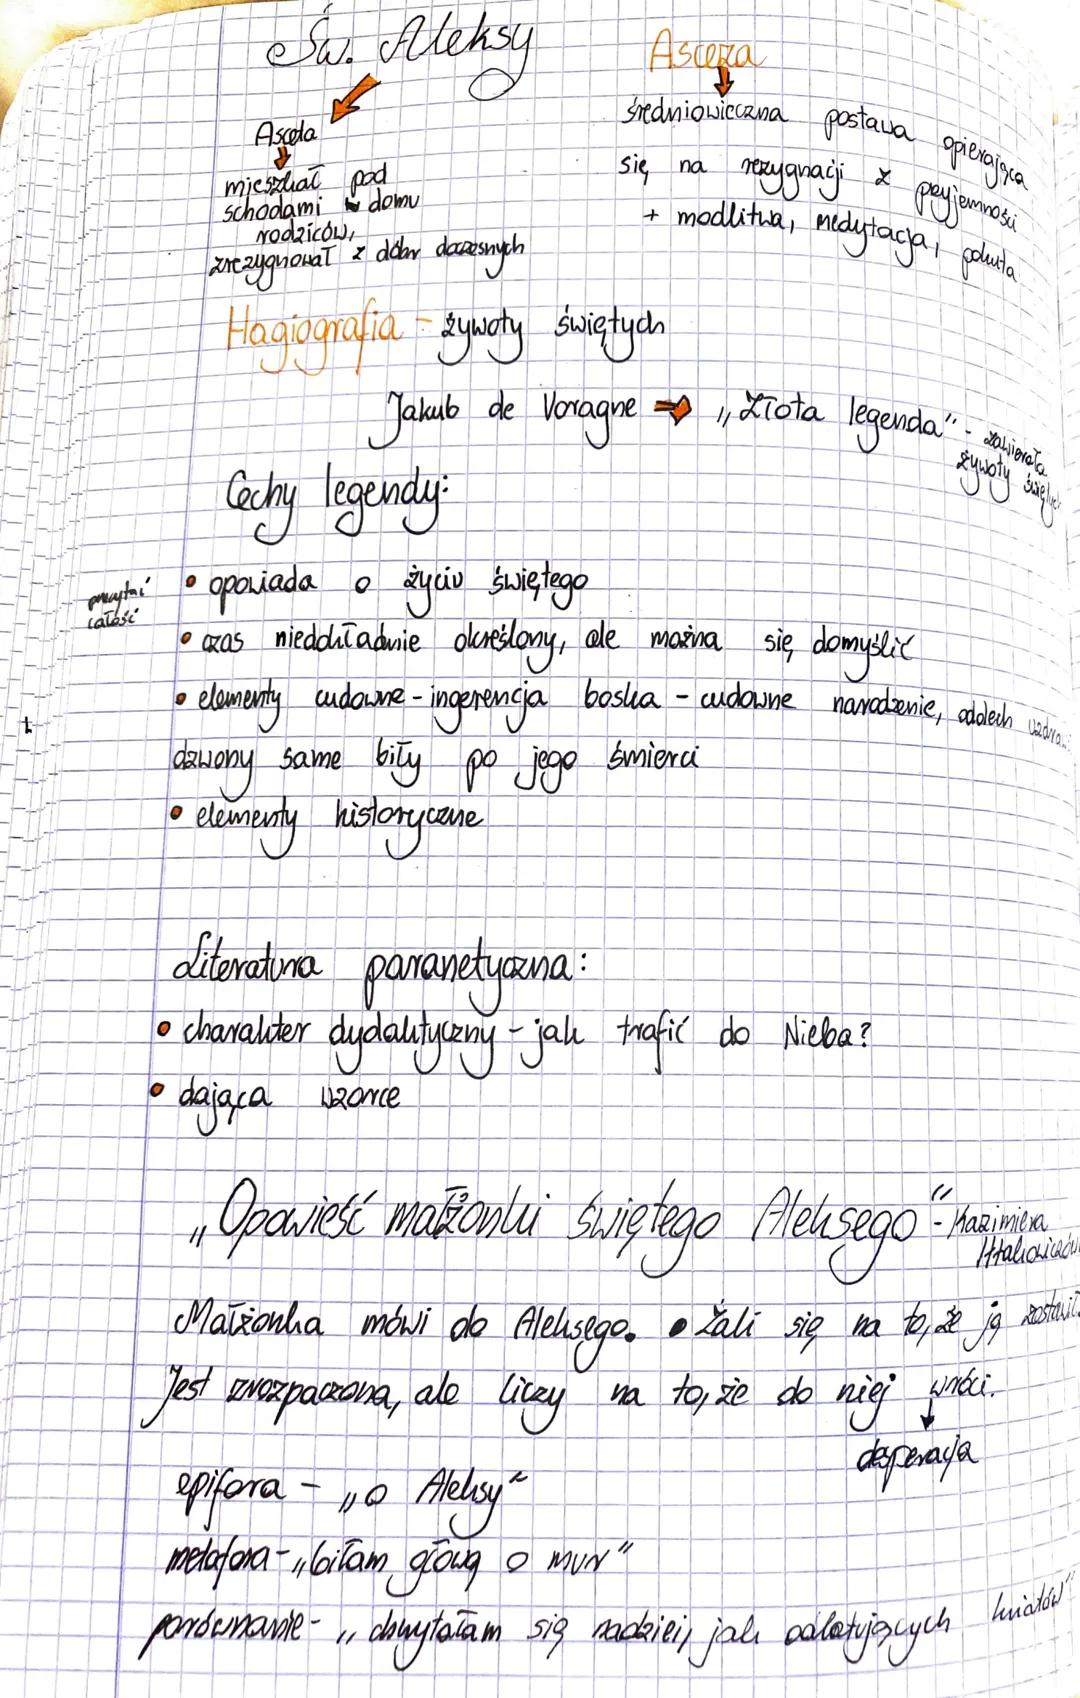 Św. Aleksy
Asceza
Asceta
mieszkał pod
schodami w domu
rodziców,
zrezygnował z dóbr doczesnych
średniowieczna postawa opierająca
się na rezygnacji z przyjemności
+ modlitwa, medytacja, pokuta
Hagiografia - żywoty świętych
Jakub de Voragne → „Złota legenda" - zawierała
żywoty świętych
Cechy legendy:
przeczytać
całość
• opowiada o życiu świętego
• czas niedokładnie określony, ale można się domyślić
• elementy cudowne - ingerencja boska - cudowne narodzenie, oddech
dzwony same biły po jego śmierci
• elementy historyczne
Literatura parenetyczna:
• charakter dydaktyczny - jak trafić do Nieba?
• dająca wzorce
„Opowieść małżonki świętego Aleksego" - Kazimiera
Iłłakowiczówna
Małżonka mówi do Aleksego. • Żali się na to, że ją zostawił.
Jest zrozpaczona, ale liczy na to, że do niej wróci.
desperacja
epifora - „o Aleksy"
metafora - „biłam głową o mur"
porównanie - „chwytałam się nadziei, jak odlatujących kwiatów"